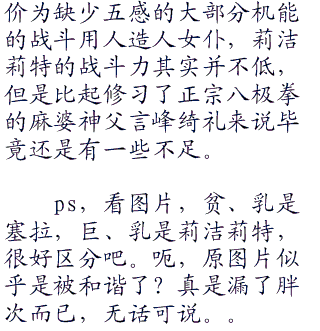 价为缺少五感的大部分机能
的战斗用人造人女仆，莉洁
莉特的战斗力其实并不低，
但是比起修习了正宗八极拳
的麻婆神父言峰绮礼来说毕
竟还是有一些不足。
ps，看图片，贫、乳是
塞拉，巨、乳是莉洁莉特，
很好区分吧。呃，原图片似
乎是被和谐了？真是漏了胖
次而已，无话可说。。